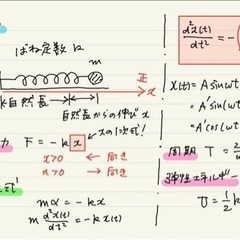 ばね定数 k
m
正
x
自然長
自然長からの伸び x
xの1次式!
F = -kx
x>0 ← 向き
x<0 → 向き
mα = -kx
m d²x(t)/dt² = -kx(t)
d²x(t)/dt² = -
x(t) = A sin ωt
= A' sin(ωt
= A' cos(ωt
周期 T = 2
弾性エネルギー
U = 1/2 k